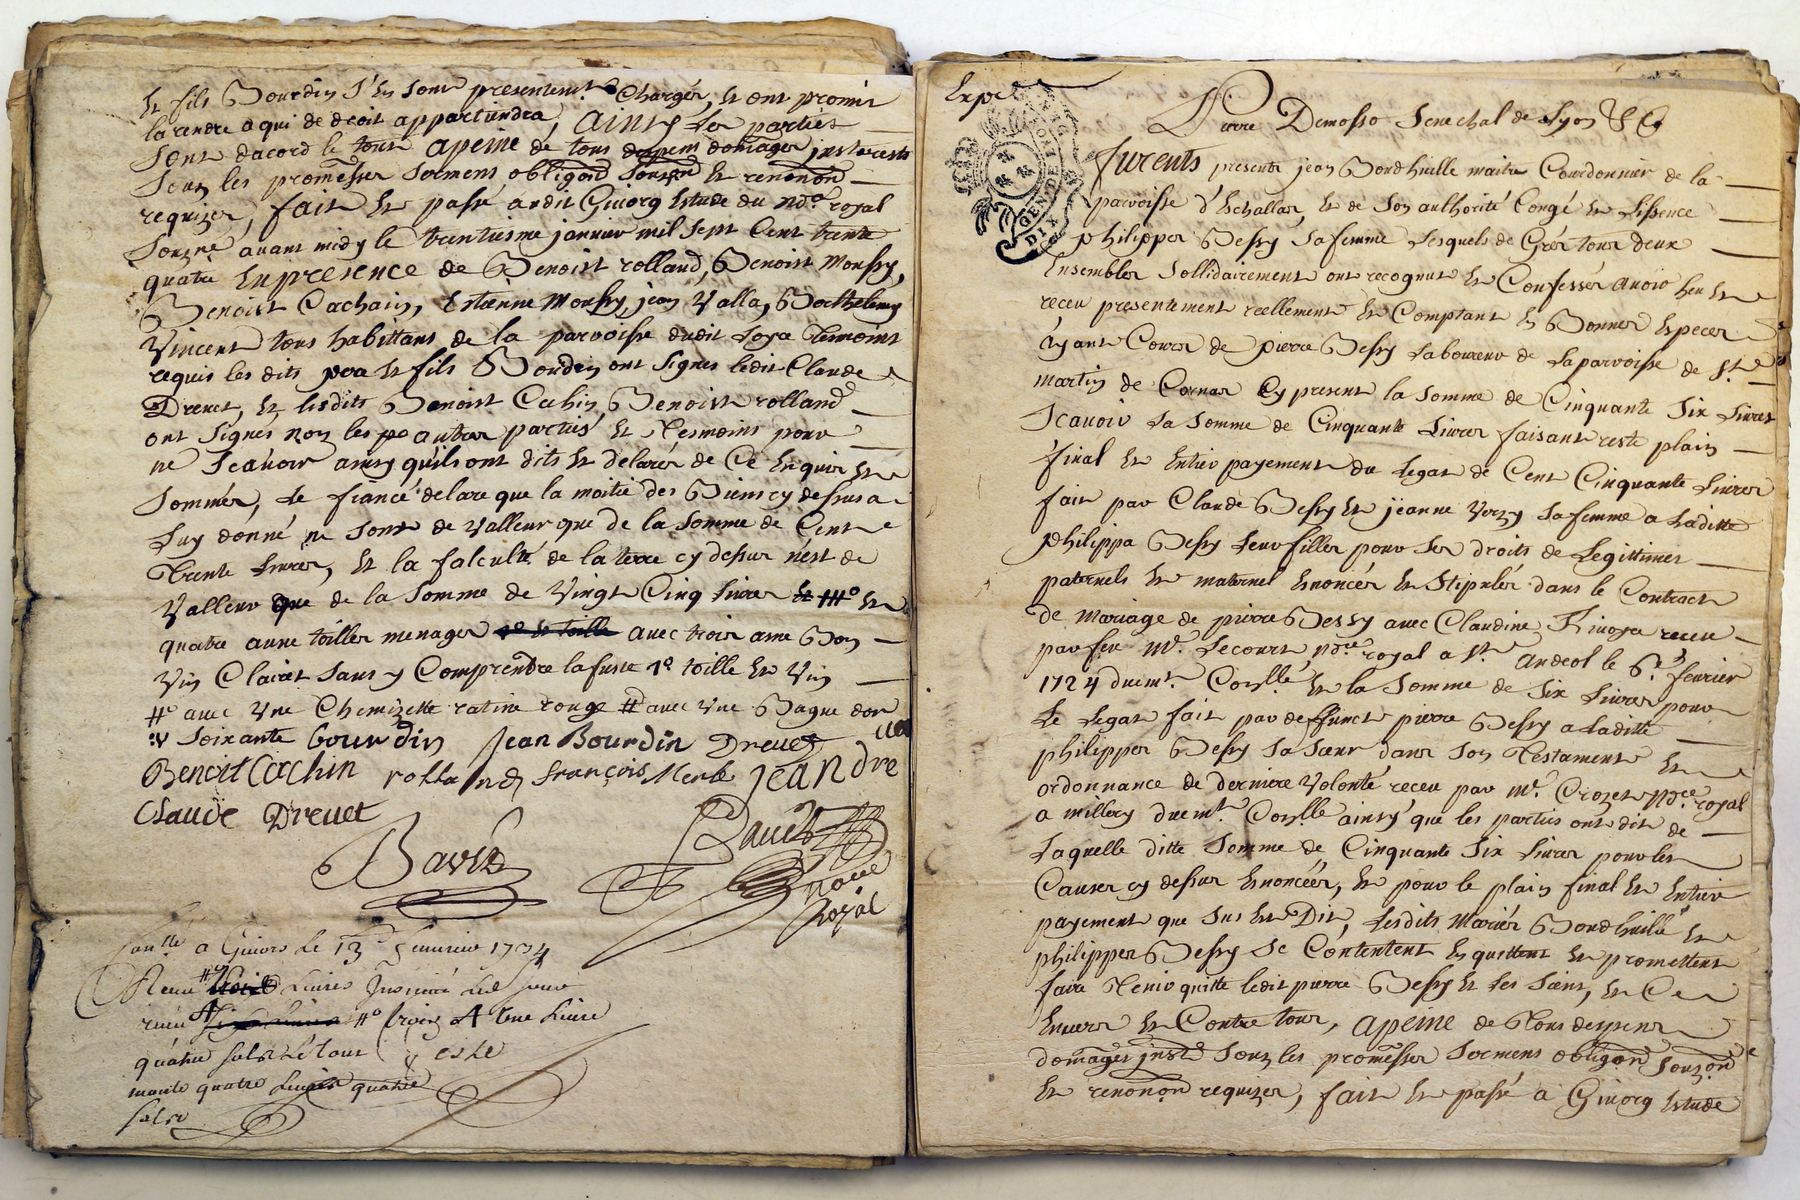 et fils Bourdin s'en sont presentement Chargés, et ont promis
la rendre a qui de droit appartiendra, ainsy les parties
sont dacord le tout apeine de tous depens domages interests
sous les promesses sermens obligaõn soumõn et renonõn
requizes, fait et passé audit Givorq Estude du no.re royal
souz.né avant midy le trentiesme janvier mil sept Cent trente
quatre En presence de Benoist rolland, Benoist Monssy,
Benoist Cachain, Estienne Monssy, jean Valla, Barthelemy
Vincent tous habittans de la parroisse dudit Loya temoins
requis les dits pere et fils Bourdin ont signés ledit Claude
Drevet, et lesdits Benoist Cachin, Benoist rolland
ont signés non les autres parties et Tesmoins pour
ne scavoir ainsy quils ont dits et delarés de Ce Enquis et
sommés, Le fiancé delare que la moitié des Biens cy dessus a
Luy donné ne sont de valleur que de la somme de Cent
Trente Livres, et la falculté de la terre cy dessus n'est de
Valleur que de la somme de Vingt Cinq Livres et
quatre aune toilles menager avec trois ame Bon
Vin Clairet sans y Comprendre la fuste toille et Vin
avec Une Chemizette ratine rouge avec Une Bague dor
soixante bourdin Jean Bourdin Drevet
Benoit Cachin rolland françois Merle jean dre
Claude Drevet
a Givors Le 13 fevrier 1734
Livres
trois Livre
quatre sols
monte quatre Livres quatre
sols
Expé
GEN DE LYON
DIX
Pierre Demosso Senechal de Lyon &C
furents presents jean Bordhuille maitre Courdonnier de la
parroisse d'Echallas, et de son authorité Congé et Lissence
philippes Bessy sa femme Lesquels de Grés tous deux
Ensembles sollidairement ont recognut et Confessés avoir heu et
receu presentement reellement et Comptant En Bonnes Especes
ayant Cours de pierre Bessy Laboureur de La parroisse de S.t
martin de Cornas Cy present la somme de Cinquante Six Livres
scavoir La somme de Cinquante Livres faisant reste plain
final et Entier payement du Legat de Cent Cinquante Livres
fait par Claude Bessy et jeanne Verzy sa femme a Laditte
philippa Bessy Leur filles pour ses droits de Legittimes
paternels et maternel Enoncés et stipulés dans le Contract
de mariage de pierre Bessy avec Claudine Rivoya receu
par feu M.e Lecourt no.re royal a S.t Andeol le 6.e fevrier
1724 duem.t Con.llé et la somme de Six Livres pour
Le Legat fait par deffunct pierre Bessy a Laditte
philippes Bessy sa sœur dans son Testament et
ordonnance de derniere volonté receu par M.e Crozet no.re royal
a millery duem.t Con.llé ainsy que les parties ont dit de
Laquelle ditte somme de Cinquante Six Livres pour les
Causes cy dessus Enoncées, et pour le plain final et Entier
payement que sus Est Dit, Lesdits mariés Bordhuille et
philippes Bessy se Contentent En quittent et promettent
faire Tenir quitte ledit pierre Bessy et les siens, et Ce
Envers et Contre tous, apeine de Tous depens
domages inst.s sous les promesses sermens obligaõn soumõn
et renonõn requizes, fait et passé a Givorq Estude